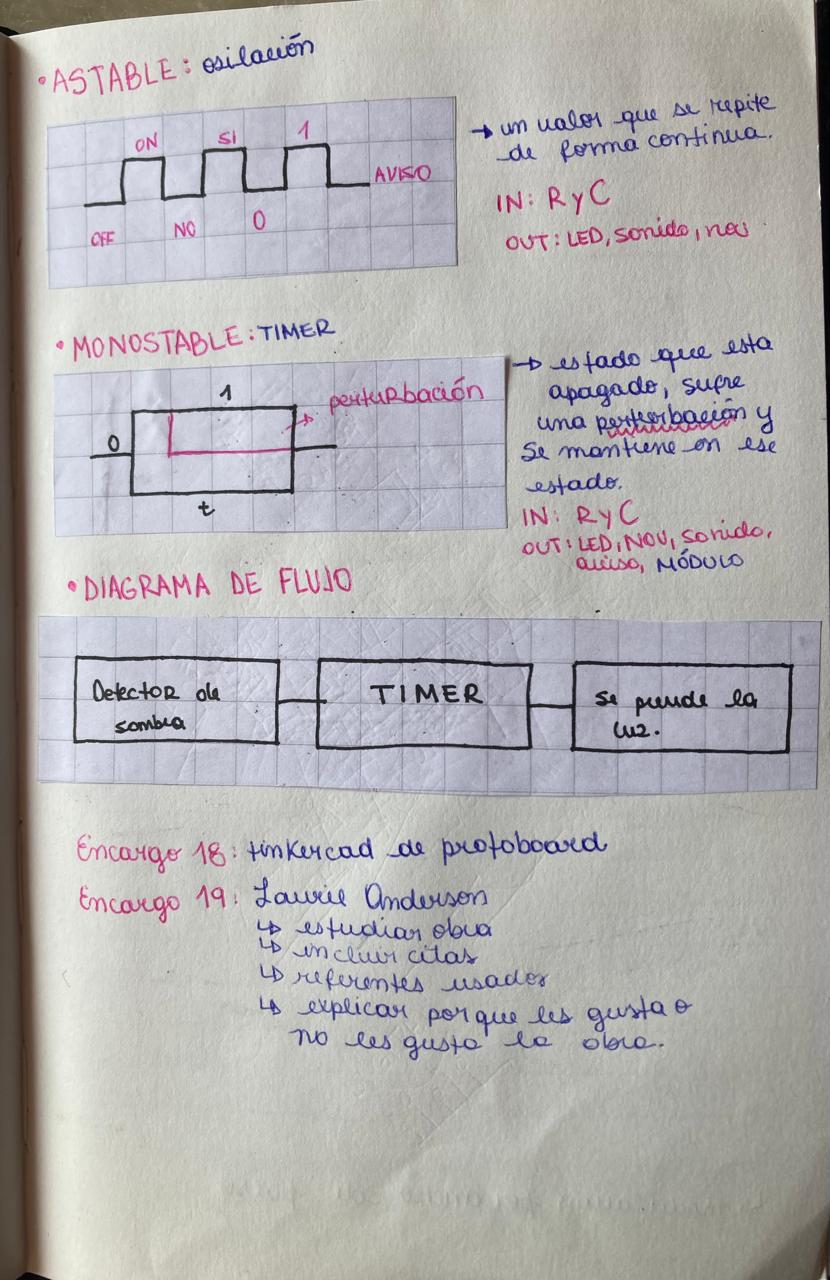 •ASTABLE: osilación
ON SI 1
AVISO
OFF NO 0
→ un valor que se repite
de forma continua.
IN: R y C
OUT: LED, sonido, nov
•MONOSTABLE: TIMER
1
→ perturbación
0
t
→ estado que esta
apagado, sufre
una perturbación y
se mantiene en ese
estado.
IN: R y C
OUT: LED, NOV, sonido,
aviso, MÓDULO
•DIAGRAMA DE FLUJO
Detector de
sombra
TIMER
se prende la
luz.
Encargo 18: tinkercad de protoboard
Encargo 19: Laurie Anderson
↳ estudiar obra
↳ incluir citas
↳ referentes usados
↳ explicar porque les gusta o
no les gusta la obra.